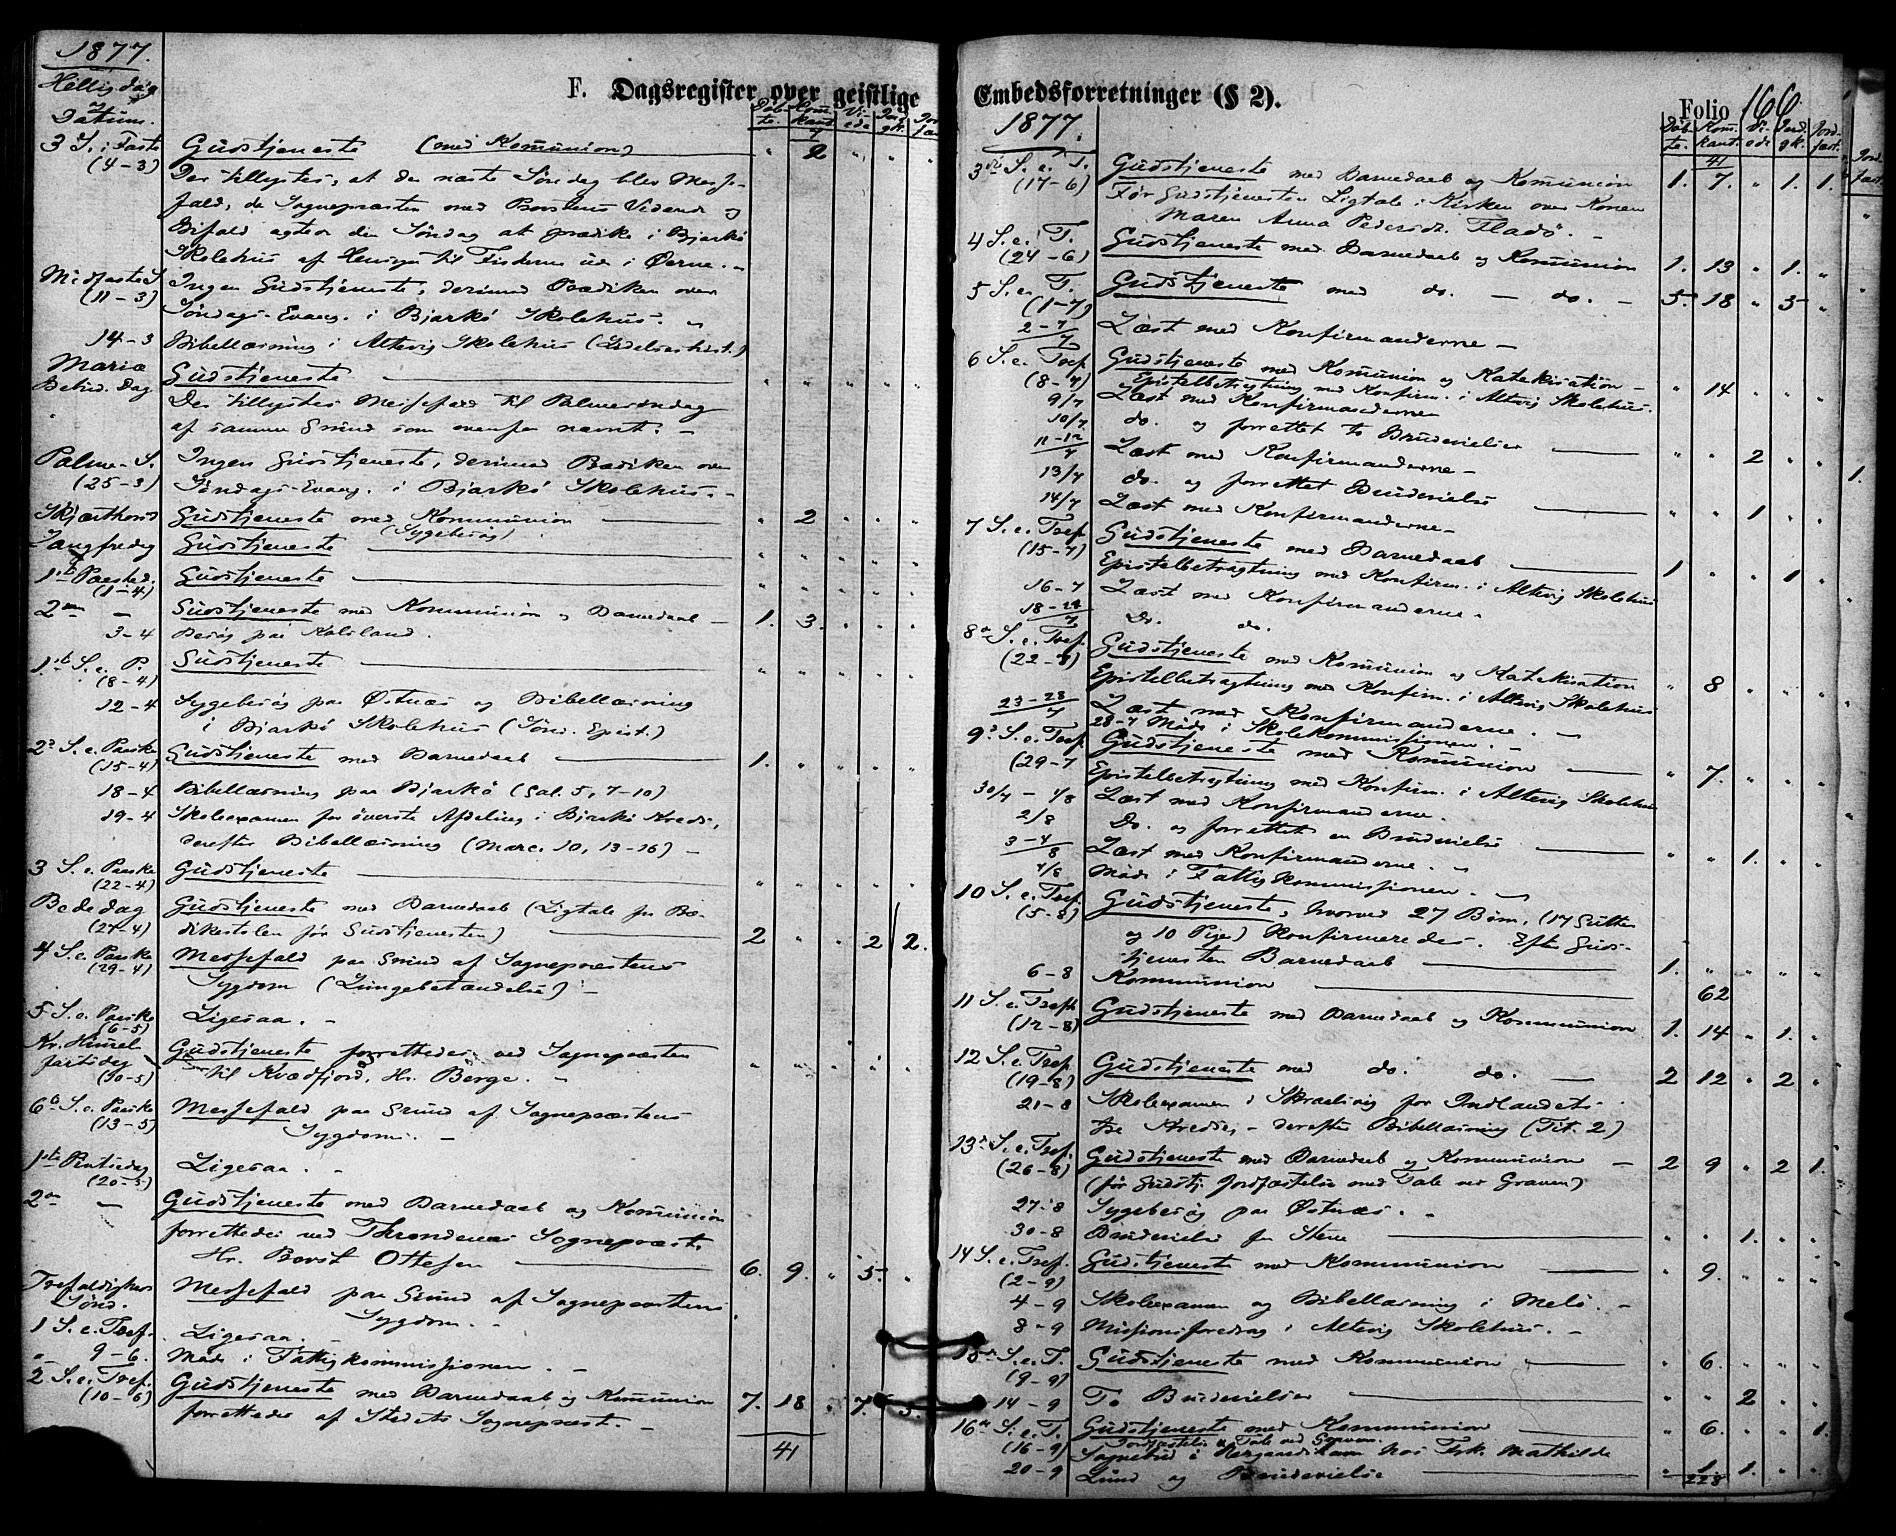 1877.
Hellig dag
og
Datum.
F. Dagsregister over geistlige
Döb- te. Kom̄- kant. Vi- ede Jord
3 S. i Faste Gudstjeneste (med Kom̄union) " 2 " " "
(4-3) Der tillystes, at der næste Søndag blev Messe-
fald, da Sognepræsten med Provstens Vidende og
Bifald agter den Søndag at prædike i Bjarkö
Skolehus af Hensyn til Fiskerne ude i Øerne. "
Midfaste S. Ingen Gudstjeneste, derimod Prædiken over
(11-3) Søndags-Evang. i Bjarkö Skolehus. "
14-3 Bibellæsning i Altevig Skolehus (Lidelseshist.)
Mariæ Gudstjeneste " " " " "
Bebud. Dag Der tillystes Messefald til Palmesøndag
af samme Grund som ovenfor nævnt. -
Palme-S. Ingen Gudstjeneste, derimod Prædiken over
(25-3) Søndags-Evang. i Bjarkö Skolehus. -
Skjærthorsd Gudstjeneste med Kommunion " 2 " " "
(Sygebesøg)
Langfredag Gudstjeneste " " " " "
1ste Paasked. Gudstjeneste " " " " "
(1-4)
2den - Gudstjeneste med Kommunion og Barnedaab - 1. 3. " " "
3-4 Besøg paa
1ste S. e. P. Gudstjeneste " " " " "
(8-4)
12-4 Sygebesøg paa Østnæs og Bibellæsning
i Bjarkö Skolehus (Sönd. Epist.)
2den S. e. Paaske Gudstjeneste med Barnedaab 1. " " " "
(15-4)
18-4 Bibellæsning paa Bjarkö (Gal. 5, 7-10)
19-4 Skoleexamen for överste Afdeling i Bjarkö Kreds,
derefter Bibellæsning (Marc. 10, 13-16) -
3 S. e. Paaske Gudstjeneste " " " " "
(22-4)
Bededag Gudstjeneste med Barnedaab (Ligtale fra Præ-
(27-4) dikestolen før Gudstjenesten) 2 " " 2 2.
4 S. e. Paaske Messefald paa Grund af Sognepræstens
(29-4) Sygdom (Lungebetændelse) -
5 S. e. Paaske Ligesaa. -
(6-5)
Kr. Himmel Gudstjeneste forrettedes ved Sognepræsten
fartsdag til Kvædfjord, Hr. Berge. - " " " " "
(10-5)
6te S. e. Paaske Messefald paa Grund af Sognepræstens
(13-5) Sygdom. -
1ste Pintsedag Ligesaa. -
(20-5)
2den - Gudstjeneste med Barnedaab og Kom̄union
forrettedes ved Throndenæs Sognepræst,
Hr. Provst Ottesen 6. 9. " 5. "
Trefoldigheds Messefald paa Grund af Sognepræstens
Sönd. Sygdom. -
1 S. e. Tref. Ligesaa. -
9-6. Møde i Fattigkommissionen. -
2 S. e. Tref. Gudstjeneste med Barnedaab og Kom̄union 7. 18 " 7. 3.
(10-6) forrettedes af Stedets Sognepræst. -
41
Embedsforretninger (§ 2).
Folio 166
1877.
Döb- te. Kom̄- kant. Vi- ede Jord- gk. Jord- fæst.
41
3die S. e. T. Gudstjeneste med Barnedaab og Kom̄union 1. 7. " 1. 1.
(17-6) Før Gudstjenesten Ligtale i Kirken over Konen
Maren Anna Pedersdr. Fladø. -
4 S. e. T. Gudstjeneste med Barnedaab og Kom̄union 1. 13 " 1. "
(24-6)
5 S. e. T. Gudstjeneste med do. - do. - 5. 18 " 5 "
(1-7)
2-7/7 Læst med Konfirmanderne -
6 S. e. Tref. Gudstjeneste med Kom̄union og Katekisation - " 14 " " "
(8-7) Epistelbetragtning med Konfirm. i Altevig Skolehus.
9/7 Læst med Konfirmanderne
10/7 do. og forrettet to Brudevielser " " 2 " "
11-12/7 Læst med Konfirmanderne -
13/7 do. og forrettet Brudevielse " " 1 " "
14/7 Læst med Konfirmanderne -
7 S. e. Tref. Gudstjeneste med Barnedaab 1 " " 1 "
(15-7) Epistelbetragtning med Konfirm. i Altevig Skolehus
16-7 Læst med Konfirmanderne. -
18-21/7 Do. do.
8de S. e. Tref. Gudstjeneste med Kom̄union og Katekisation " 8 " " "
(22-7) Epistelbetragtning med Konfirm. i Altevig Skolehus
23-28/7 Læst med Konfirmanderne. -
28-7 Møde i Skolekommissionen. -
9de S. e. Tref. Gudstjeneste med Kommunion " 7. " " "
(29-7 Epistelbetragtning med Konfirm. i Altevig Skolehus
30/7 - 1/8 Læst med Konfirmanderne.
2/8 Do. og forrettet en Brudevielse " " 1. " "
3-4/8 Læst med Konfirmanderne. "
4/8 Møde i Fattigkommissionen. "
10 S. e. Tref. Gudstjeneste, hvorved 27 Børn, (17 Gutter
(5-8) og 10 Piger) konfirmeredes. Efter Guds-
tjenesten Barnedaab 1. " " " "
6-8 Kommunion 62
11 S. e. Trefh Gudstjeneste med Barnedaab og Kommunion 1. 14 " 1. "
(12-8)
12 S. e. Tref. Gudstjeneste med do. do. 2 12 " 2 "
(19-8)
21-8 Skoleexamen i Skrælvig for Indlandets
tre Kredse, - derefter Bibellæsning (Tit. 2)
13de S. e. Tref. Gudstjeneste med Barnedaab og Kommunion - 2 9 " 2 1.
(26-8) (før Gudstj. Jordfæstelse med Tale ved Graven)
27-8 Sygebesøg paa Østnæs. "
30-8 Brudevielse paa Stene " " 1. " "
14 S. e. Tref. Gudstjeneste med Kommunion " 9. " " "
(2-9)
4-9 Skoleexamen og Bibellæsning i Melö. -
8-9 Missionsforedrag i Altevig Skolehus. -
15de S. e. T. Gudstjeneste med Kommunion " 6. " " "
(9-9)
14-9 To Brudevielser " " 2 " "
16de S. e. T. Gudstjeneste med Kommunion " 6. " " 1.
(16-9) Jordfæstelse og Tale ved Graven.
Sognebud i hos Frk. Mathilde
20-9 Lund og Brudevielse " 1 1. " "
228